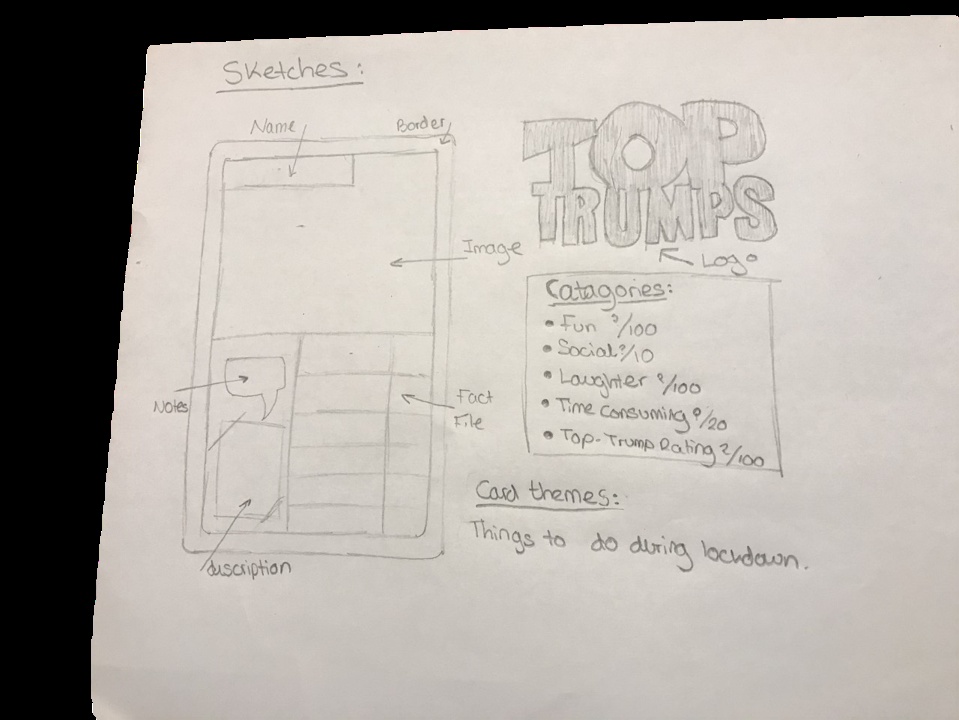 Sketches:
Name
Border
TOP
TRUMPS
Image
Logo
Catagories:
• Fun ?/100
• Social ?/10
• Laughter ?/100
• Time Consuming ?/20
• Top-Trump Rating ?/100
Notes
Fact
File
Card themes:
Things to do during lockdown.
discription